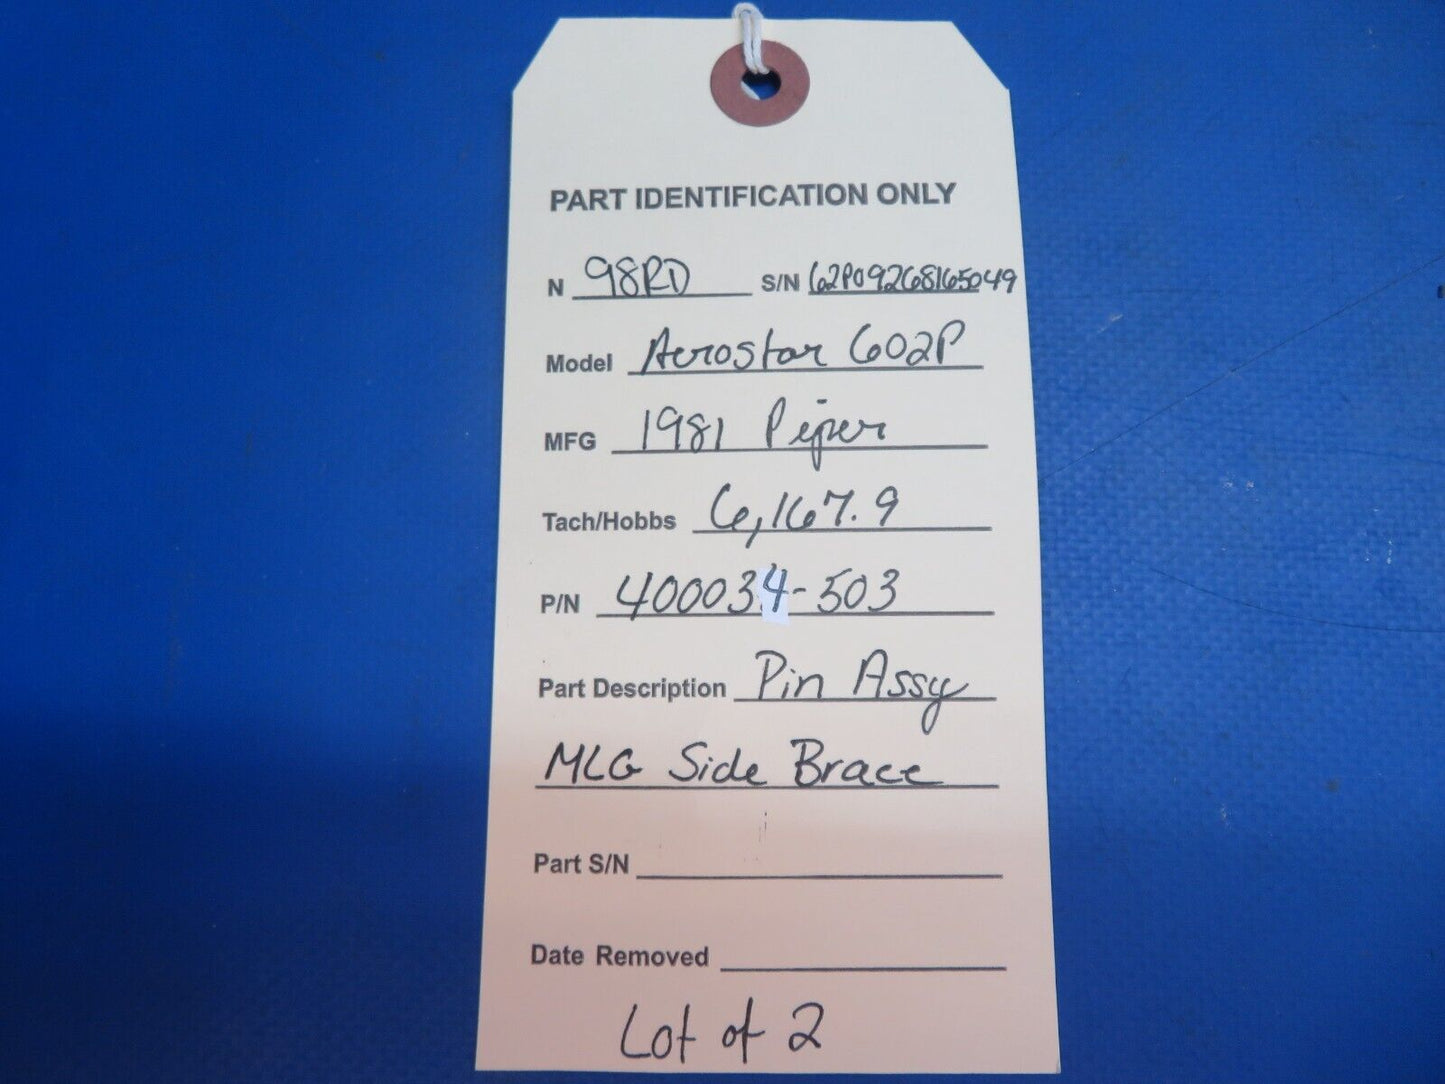 PART IDENTIFICATION ONLY
N 98RD S/N 62P09268165049
Model Aerostar 602P
MFG 1981 Piper
Tach/Hobbs 6,167.9
P/N 400034-503
Part Description Pin Assy
MLG Side Brace
Part S/N
Date Removed
Lot of 2